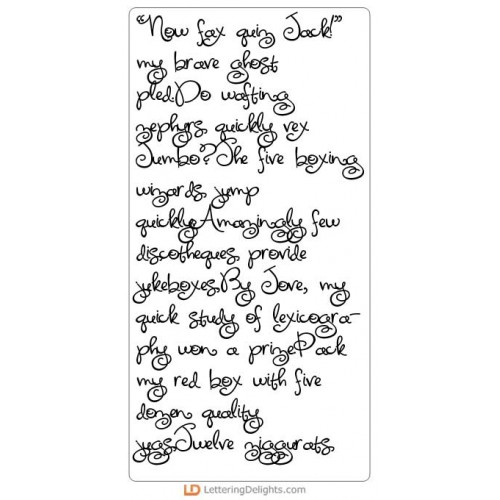 “Now fax quiz Jack!”
my brave ghost
pled.Do wafting
zephyrs quickly vex
Jumbo?The five boxing
wizards jump
quickly.Amazingly few
discotheques provide
jukeboxes.By Jove, my
quick study of lexicogra-
phy won a prizePack
my red box with five
dozen quality
jugs.Twelve ziggurats
LD LetteringDelights.com